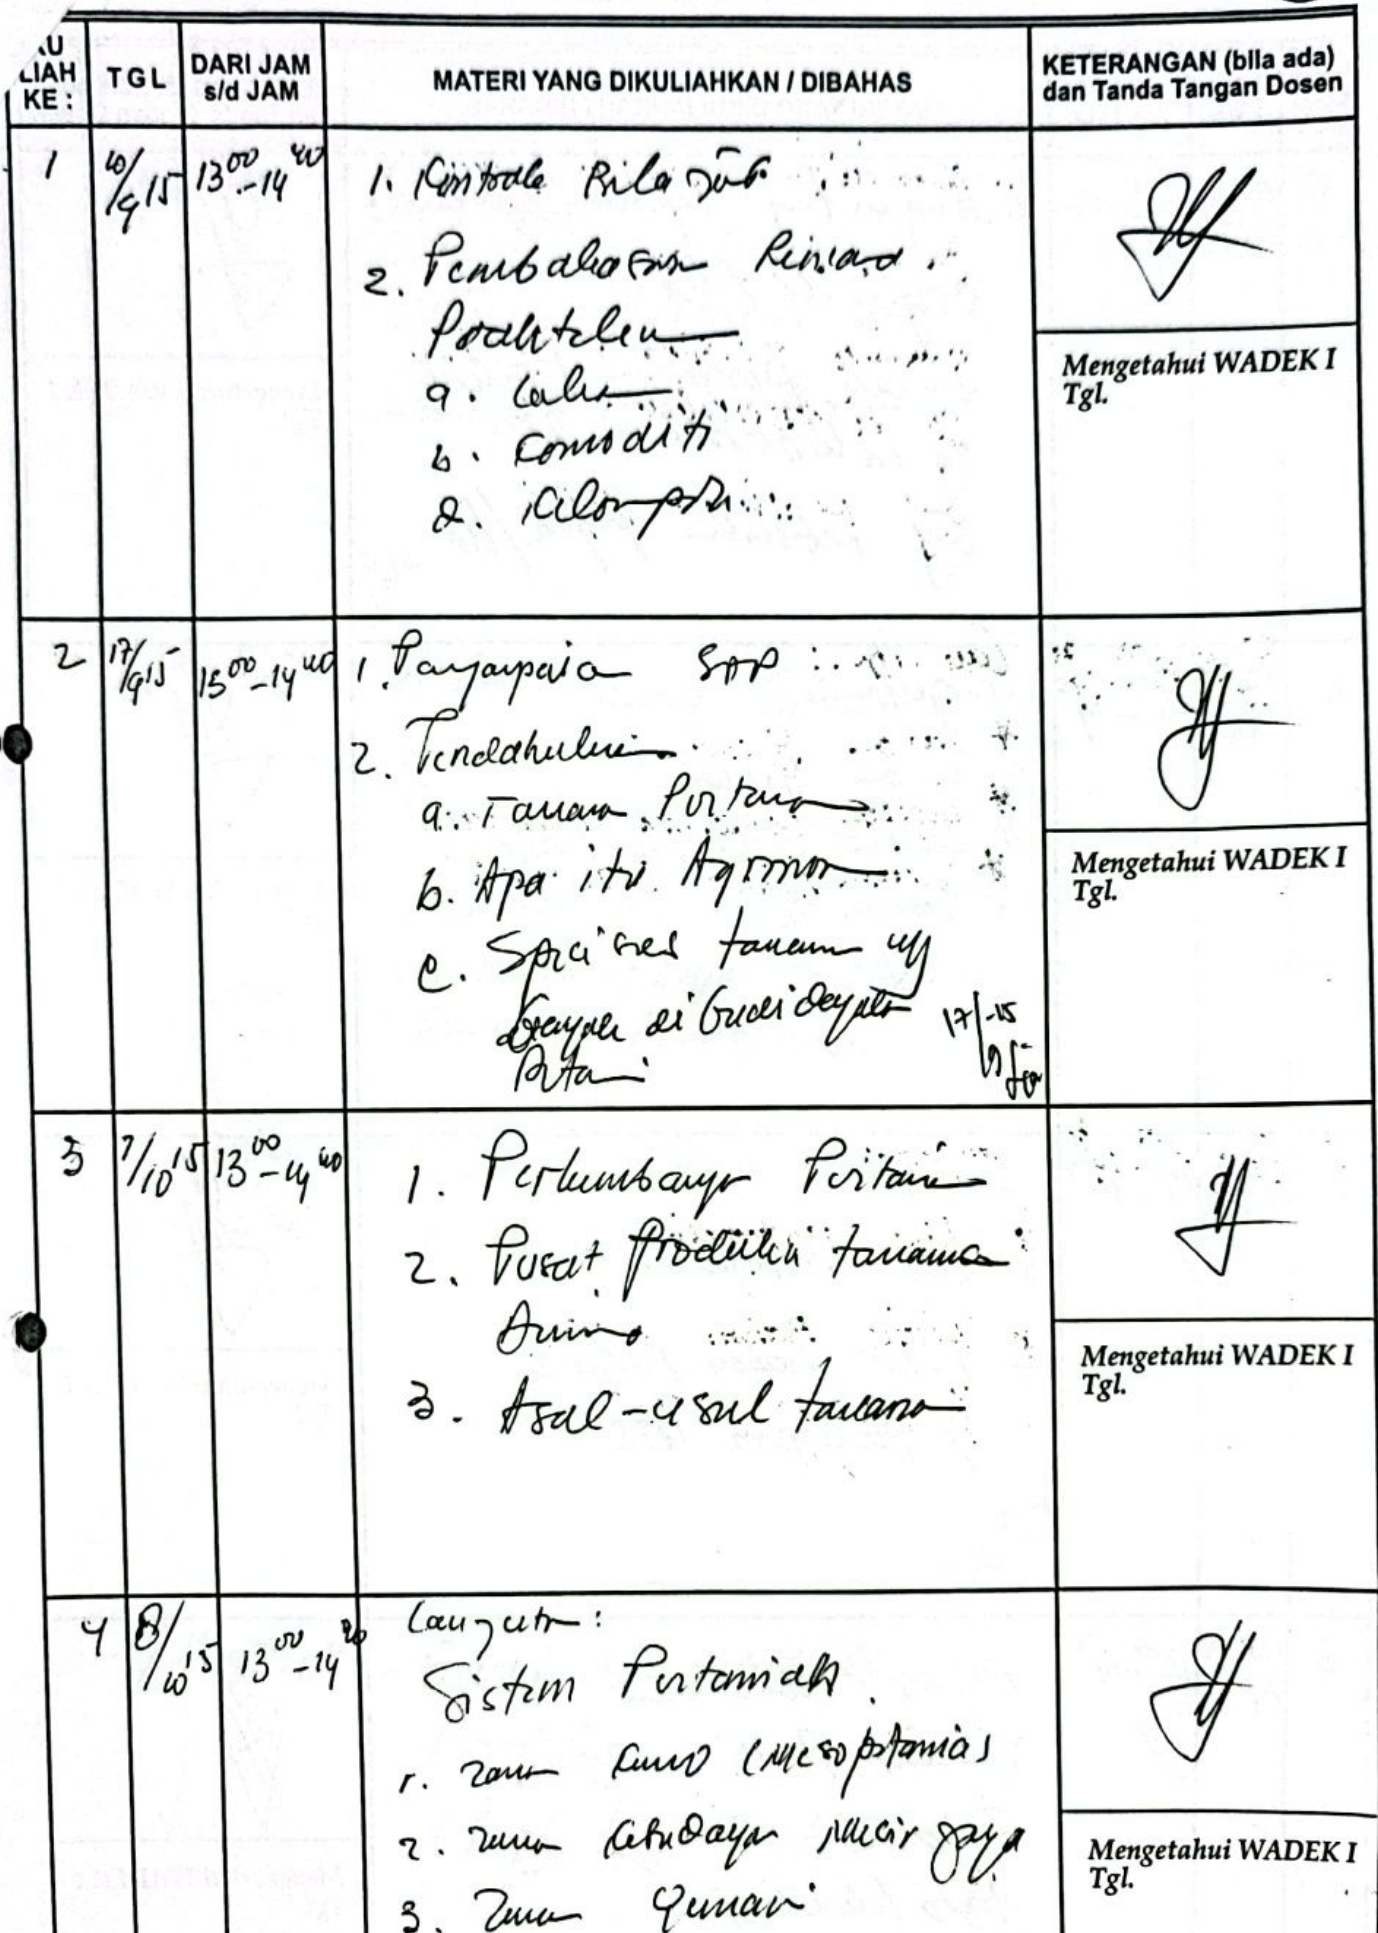 LIAH
KE :
TGL
DARI JAM
s/d JAM
MATERI YANG DIKULIAHKAN / DIBAHAS
KETERANGAN (bila ada)
dan Tanda Tangan Dosen
1
10/9 15
13 00 - 14 40
1. Kontrak
2. Pembahasan
a. Lahan
b. Komoditi
Mengetahui WADEK I
Tgl.
2
17/9 15
13 00 - 14 40
1. SAP
2. Pendahuluan
a. Tanaman Pertanian
b. Apa itu Agronomi
c. Spesies tanaman yg
banyak di budidayakan
Petani
17/9 -15
Mengetahui WADEK I
Tgl.
3
7/10 15
13 00 - 14 40
1. Perkembangan Pertanian
2. Pusat Produksi tanaman
Dunia
3. Asal-usul tanaman
Mengetahui WADEK I
Tgl.
4
8/10 15
13 00 - 14 40
Lanjutan :
Sistem Pertanian
1. Zaman Kuno (Mesopotamia)
2. Zaman Kebudayaan Mesir
3. Zaman Yunani
Mengetahui WADEK I
Tgl.